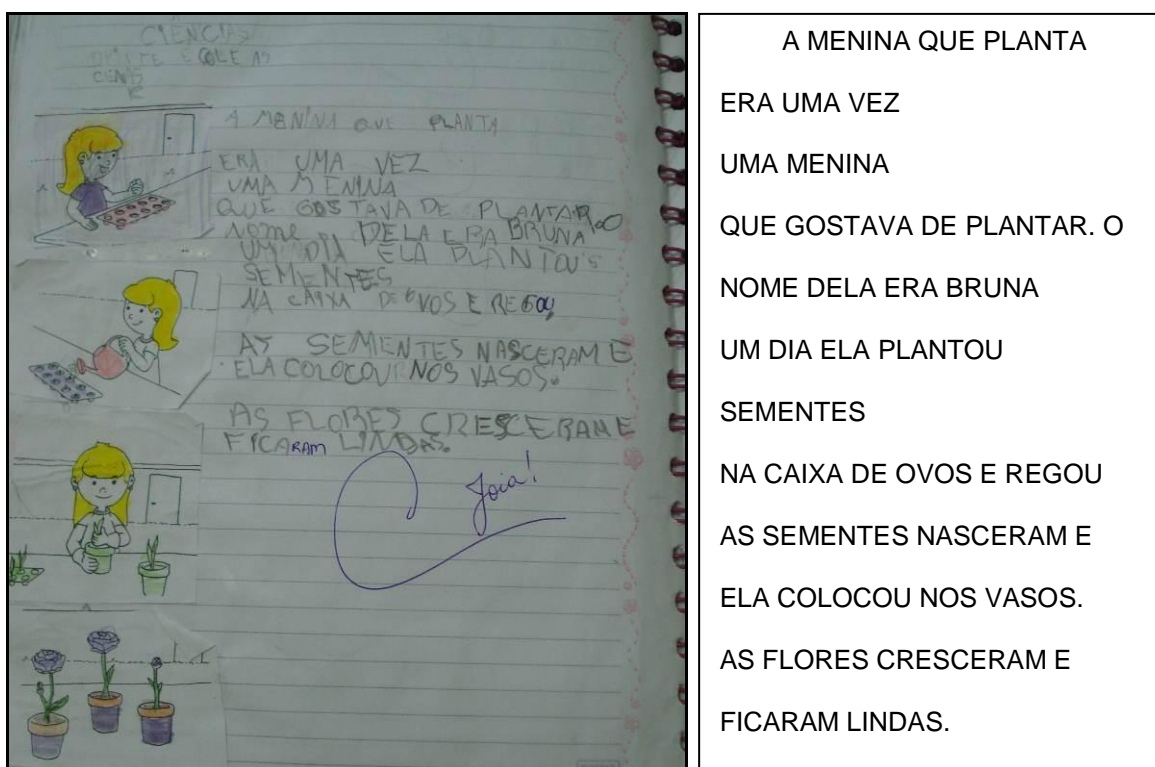 CIÊNCIAS
E COLE AS
CENAS
A MENINA QUE PLANTA
ERA UMA VEZ
UMA MENINA
QUE GOSTAVA DE PLANTAR. O
NOME DELA ERA BRUNA
UM DIA ELA PLANTOU
SEMENTES
NA CAIXA DE OVOS E REGOU
AS SEMENTES NASCERAM E
ELA COLOCOU NOS VASOS.
AS FLORES CRESCERAM E
FICARAM LINDAS.
Joia!
A MENINA QUE PLANTA
ERA UMA VEZ
UMA MENINA
QUE GOSTAVA DE PLANTAR. O
NOME DELA ERA BRUNA
UM DIA ELA PLANTOU
SEMENTES
NA CAIXA DE OVOS E REGOU
AS SEMENTES NASCERAM E
ELA COLOCOU NOS VASOS.
AS FLORES CRESCERAM E
FICARAM LINDAS.